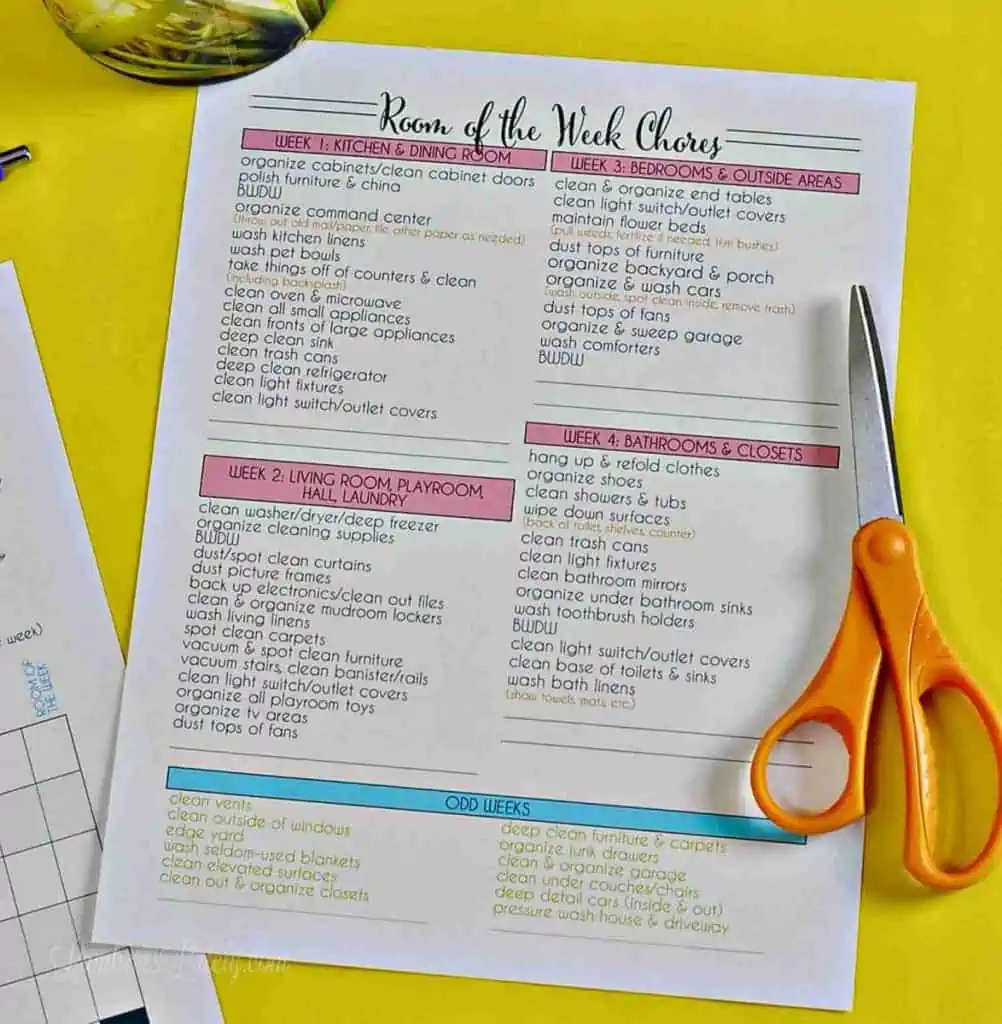 Room of the Week Chores
WEEK 1: KITCHEN & DINING ROOM
organize cabinets/clean cabinet doors
polish furniture & china
BWDW
organize command center
(throw out old mail/paper, file other paper as needed)
wash kitchen linens
wash pet bowls
take things off of counters & clean
(including backsplash)
clean oven & microwave
clean all small appliances
clean fronts of large appliances
deep clean sink
clean trash cans
deep clean refrigerator
clean light fixtures
clean light switch/outlet covers
WEEK 2: LIVING ROOM, PLAYROOM,
HALL, LAUNDRY
clean washer/dryer/deep freezer
organize cleaning supplies
BWDW
dust/spot clean curtains
dust picture frames
back up electronics/clean out files
clean & organize mudroom lockers
wash living linens
spot clean carpets
vacuum & spot clean furniture
vacuum stairs, clean banister/rails
clean light switch/outlet covers
organize all playroom toys
organize tv areas
dust tops of fans
WEEK 3: BEDROOMS & OUTSIDE AREAS
clean & organize end tables
clean light switch/outlet covers
maintain flower beds
(pull weeds, fertilize if needed, trim bushes)
dust tops of furniture
organize backyard & porch
organize & wash cars
(wash outside, spot clean inside, remove trash)
dust tops of fans
organize & sweep garage
wash comforters
BWDW
WEEK 4: BATHROOMS & CLOSETS
hang up & refold clothes
organize shoes
clean showers & tubs
wipe down surfaces
(back of toilet, shelves, counter)
clean trash cans
clean light fixtures
clean bathroom mirrors
organize under bathroom sinks
wash toothbrush holders
BWDW
clean light switch/outlet covers
clean base of toilets & sinks
wash bath linens
(show towels, mats, etc.)
ODD WEEKS
clean vents
clean outside of windows
edge yard
wash seldom-used blankets
clean elevated surfaces
clean out & organize closets
deep clean furniture & carpets
organize junk drawers
clean & organize garage
clean under couches/chairs
deep detail cars (inside & out)
pressure wash house & driveway
week)
ROOM OF
THE WEEK